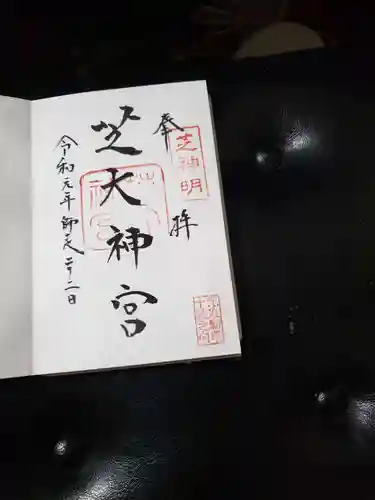 奉拝
芝神明
芝大神宮
令和元年師走二十二日